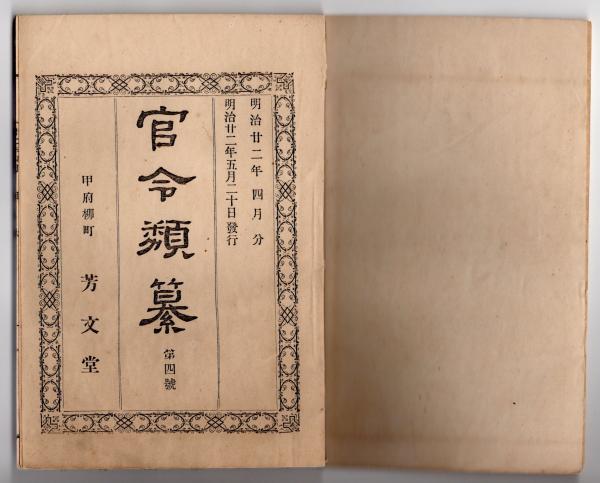 明治廿二年四月分
明治廿二年五月二十日發行
官令類纂 第四號
甲府柳町 芳文堂